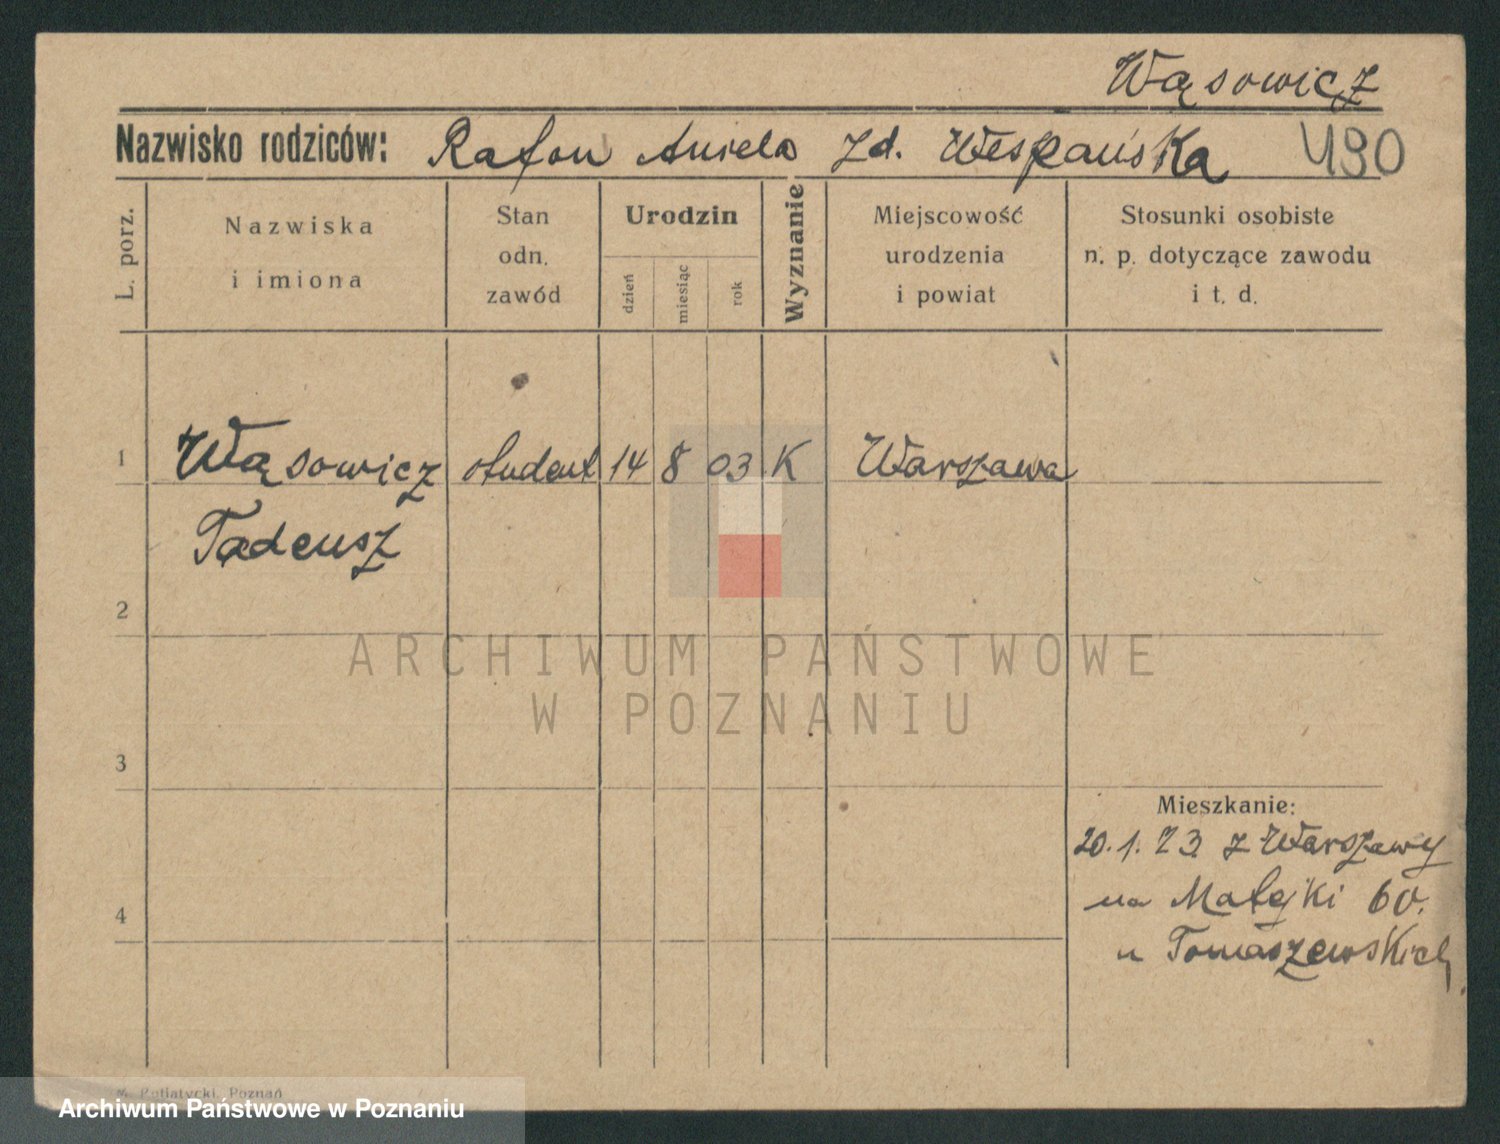 Wąsowicz
Nazwisko rodziców: Rafon Aniela zd. Wespańska 490
L. porz.
Nazwiska
i imiona
Stan
odn.
zawód
Urodzin
dzień
miesiąc
rok
Wyznanie
Miejscowość
urodzenia
i powiat
Stosunki osobiste
n. p. dotyczące zawodu
i t. d.
1 Wąsowicz student 14 8 03 K Warszawa
Tadeusz
2
ARCHIWUM PAŃSTWOWE
W POZNANIU
3
Mieszkanie:
20.1.23 z Warszawy
4 na Matejki 60.
u Tomaszewskich.
Poznań
Archiwum Państwowe w Poznaniu